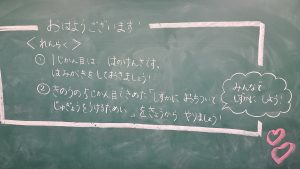 おはようございます
＜れんらく＞
① 1じかん目は はのけんさです。
はみがきをしておきましょう!
② きのうの5じかん目できめた「しずかに おちついて
じゅぎょうをうけるために」をきょうから やりましょう!
みんなで
しずかに しよう!